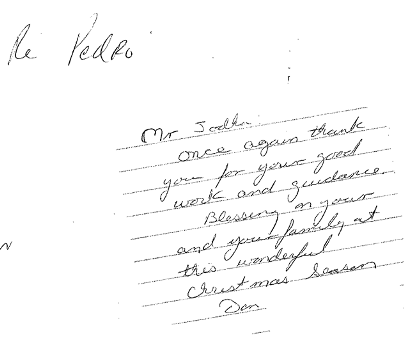 Re Pedro
Mr
once again thank
you for your good
work and guidance.
Blessing on your
and your family at
this wonderful
Christmas Season
Dan
N